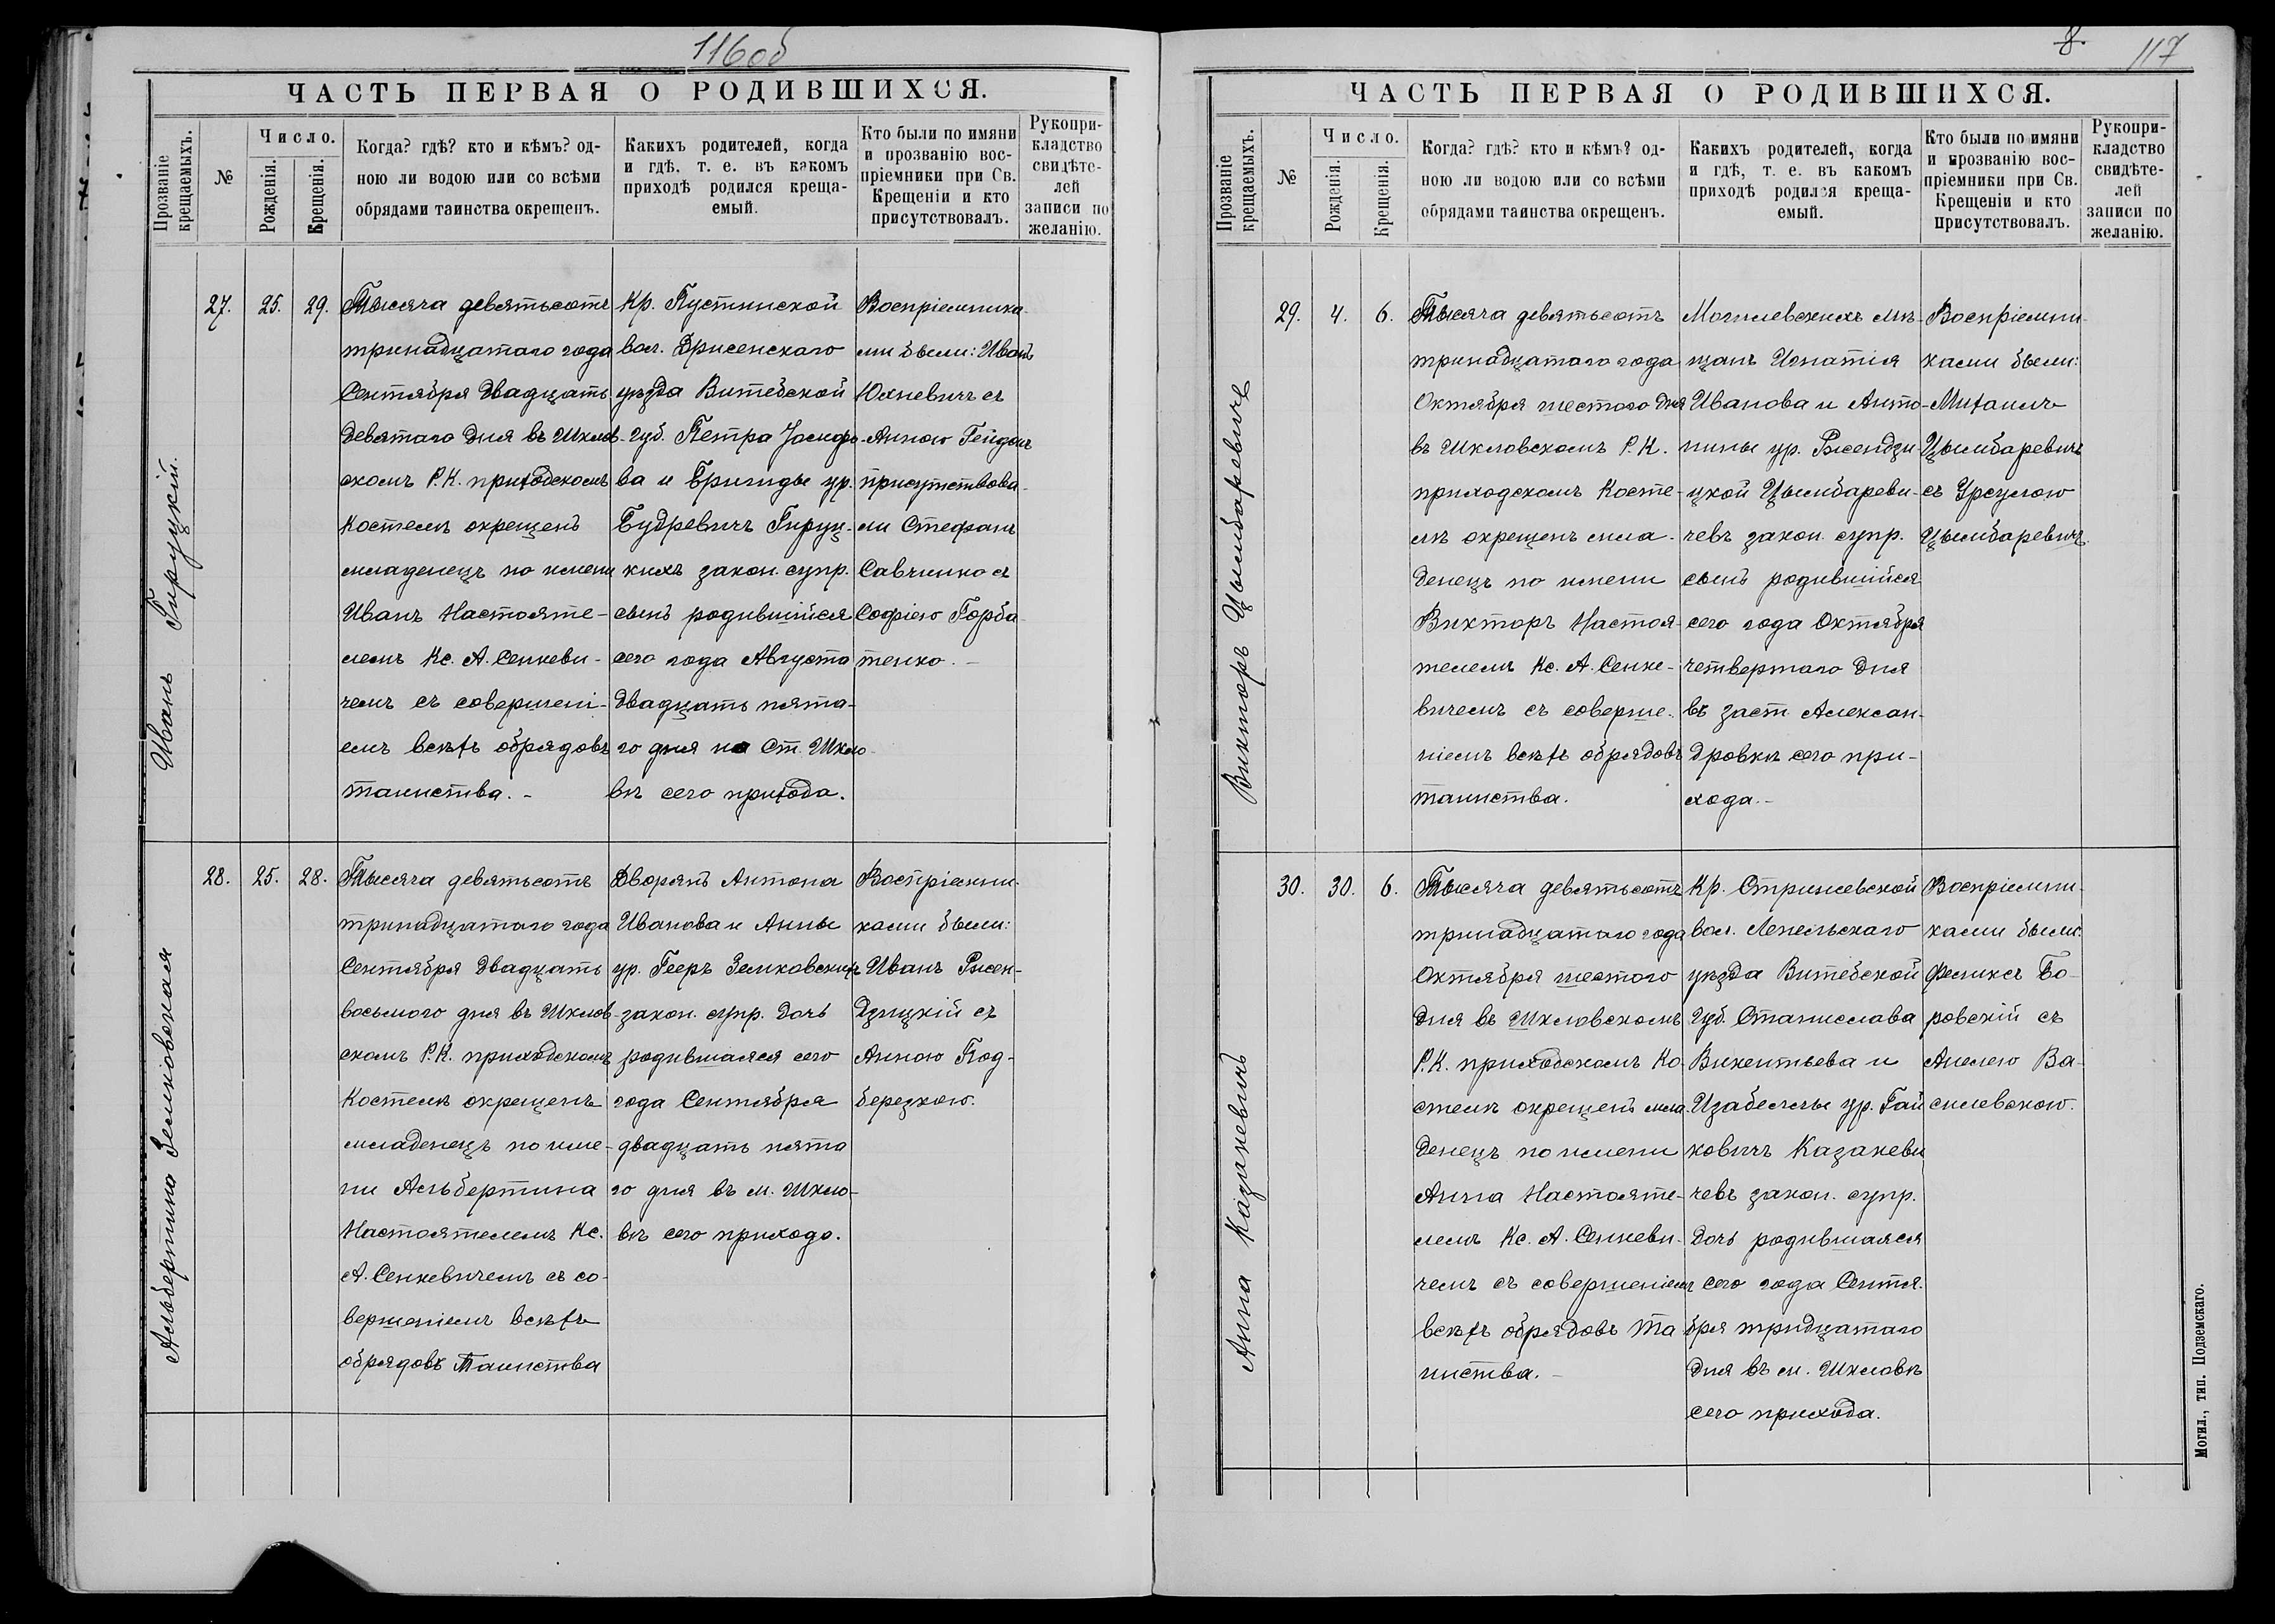 116об
ЧАСТЬ ПЕРВАЯ О РОДИВШИХСЯ.
Прозваніе
крещаемыхъ.
№
Число.
Рожденія.
Крещенія.
Когда? гдѣ? кто и кѣмъ? од-
ною ли водою или со всѣми
обрядами таинства окрещенъ.
Какихъ родителей, когда
и гдѣ, т. е. въ какомъ
приходѣ родился креща-
емый.
Кто были по имяни
и прозванію вос-
пріемники при Св.
Крещеніи и кто
присутствовалъ.
Рукопри-
кладство
свидѣте-
лей
записи по
желанію.
Иванъ Гируцкій.
27.
25.
29.
Тысяча девятьсотъ
тринадцатаго года
Сентября двадцать
девятаго дня въ Шклов-
скомъ Р.К. приходскомъ
Костелѣ окрещенъ
младенецъ по имени
Иванъ Настояте-
лемъ Кс. А. Сенкеви-
чемъ съ совершені-
емъ всѣхъ обрядовъ
таинства.-
Кр. Пустинской
вол. Дрисенскаго
уѣзда Витебской
губ. Петра Іосифо-
ва и Бригиды ур.
Будревичъ Гируц-
кихъ закон. супр.
сынъ родившійся
сего года Августа
двадцать пята-
го дня на Ст. Шкло-
вѣ сего прихода.
Воспріемника-
ми были: Иванъ
Юхневичъ съ
Анною Гейдонъ
присутствова-
ли Стефанъ
Савченко съ
Софіею Горба-
тенко.-
Альбертина Земковсная
28.
25.
28.
Тысяча девятьсотъ
тринадцатаго года
Сентября двадцать
восьмого дня въ Шклов-
скомъ Р.К. приходскомъ
Костелѣ окрещенъ
младенецъ по име-
ни Альбертина
Настоятелемъ Кс.
А. Сенкевичемъ съ со-
вершеніемъ всѣхъ
обрядовъ Таинства
Дворянъ Антона
Иванова и Анны
ур. Гееръ Земковскихъ
закон. супр. дочь
родившаяся сего
года Сентября
двадцать пята
го дня въ м. Шкло-
вѣ сего прихода.
Воспріемни-
ками были:
Иванъ Рысен-
дзицкій съ
Анною Под-
березкою.
8.
117
ЧАСТЬ ПЕРВАЯ О РОДИВШИХСЯ.
Прозваніе
крещаемыхъ.
№
Число.
Рожденія.
Крещенія.
Когда? гдѣ? кто и кѣмъ? од-
ною ли водою или со всѣми
обрядами таинства окрещенъ.
Какихъ родителей, когда
и гдѣ, т. е. въ какомъ
приходѣ родился креща-
емый.
Кто были по имяни
и прозванію вос-
пріемники при Св.
Крещеніи и кто
присутствовалъ.
Рукопри-
кладство
свидѣте-
лей
записи по
желанію.
Викторъ Цымбаревичъ
29.
4.
6.
Тысяча девятьсотъ
тринадцатаго года
Октября шестого дня
въ Шкловскомъ Р.К.
приходскомъ Косте-
лѣ окрещенъ мла-
денецъ по имени
Викторъ Настоя-
телемъ Кс. А. Сенке-
вичемъ съ соверше-
ніемъ всѣхъ обрядовъ
таинства.
Могилевскихъ мѣ-
щанъ Игнатія
Иванова и Анто-
нины ур. Рысендзи-
цкой Цымбареви-
чевъ закон. супр.
сынъ родившійся
сего года Октября
четвертаго дня
въ заст. Алексан-
дровкѣ сего при-
хода.-
Воспріемни-
ками были:
Михаилъ
Цымбаревичъ
съ Урсулою
Цымбаревичъ.
Анна Казакевичъ
30.
30.
6.
Тысяча девятьсотъ
тринадцатаго года
Октября шестого
дня въ Шкловскомъ
Р.К. приходскомъ Ко-
стелѣ окрещенъ мла-
денецъ по имени
Анна Настояте-
лемъ Кс. А. Сенкеви-
чемъ съ совершеніемъ
всѣхъ обрядовъ та
инства.-
Кр. Стрижевской
вол. Лепельскаго
уѣзда Витебской
Губ. Станислава
Викентьева и
Изабеллы ур. Гай
ковичъ Казакеви
чевъ закон. супр.
дочь родившаяся
сего года Сентя-
бря тридцатаго
дня въ м. Шкловѣ
сего прихода.
Воспріемни-
ками были:
Феликсъ Бо-
ровскій съ
Анелею Ва-
силевскою.
Могил., тип. Подземскаго.